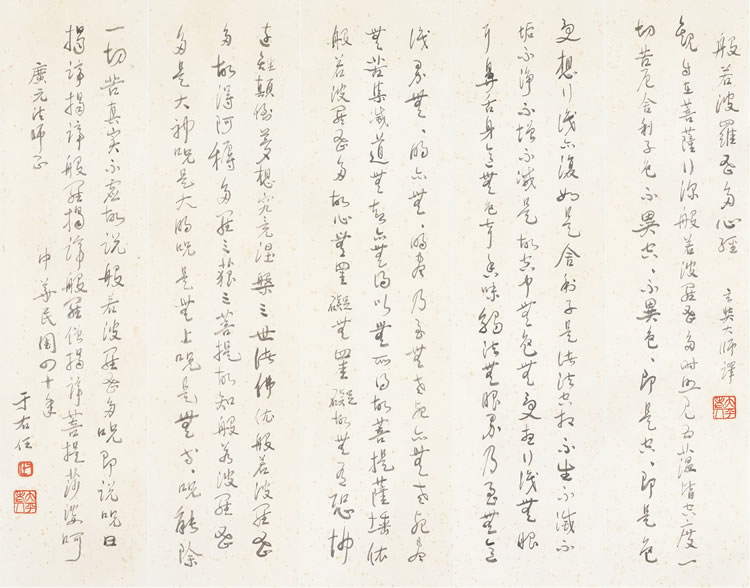 般若波羅蜜多心經 玄奘大師譯
觀自在菩薩行深般若波羅蜜多時照見五蘊皆空度一
切苦厄舍利子色不異空、不異色、即是空、即是色
受想行識亦復如是舍利子是諸法空相不生不滅不
垢不淨不增不減是故空中無色無受想行識無眼
耳鼻舌身意無色聲香味觸法無眼界乃至無意
識界無、明亦無、明盡乃至無老死亦無老死盡
無苦集滅道無智亦無得以無所得故菩提薩埵依
般若波羅蜜多故心無罣礙無罣礙故無有恐怖
遠離顛倒夢想究竟涅槃三世諸佛依般若波羅蜜
多故得阿耨多羅三藐三菩提故知般若波羅蜜
多是大神呪是大明呪是無上呪是無等、呪能除
一切苦真實不虛故說般若波羅蜜多呪即說呪曰
揭諦揭諦般羅揭諦般羅僧揭諦菩提莎婆呵
廣元法師正
中華民國四十年
于右任